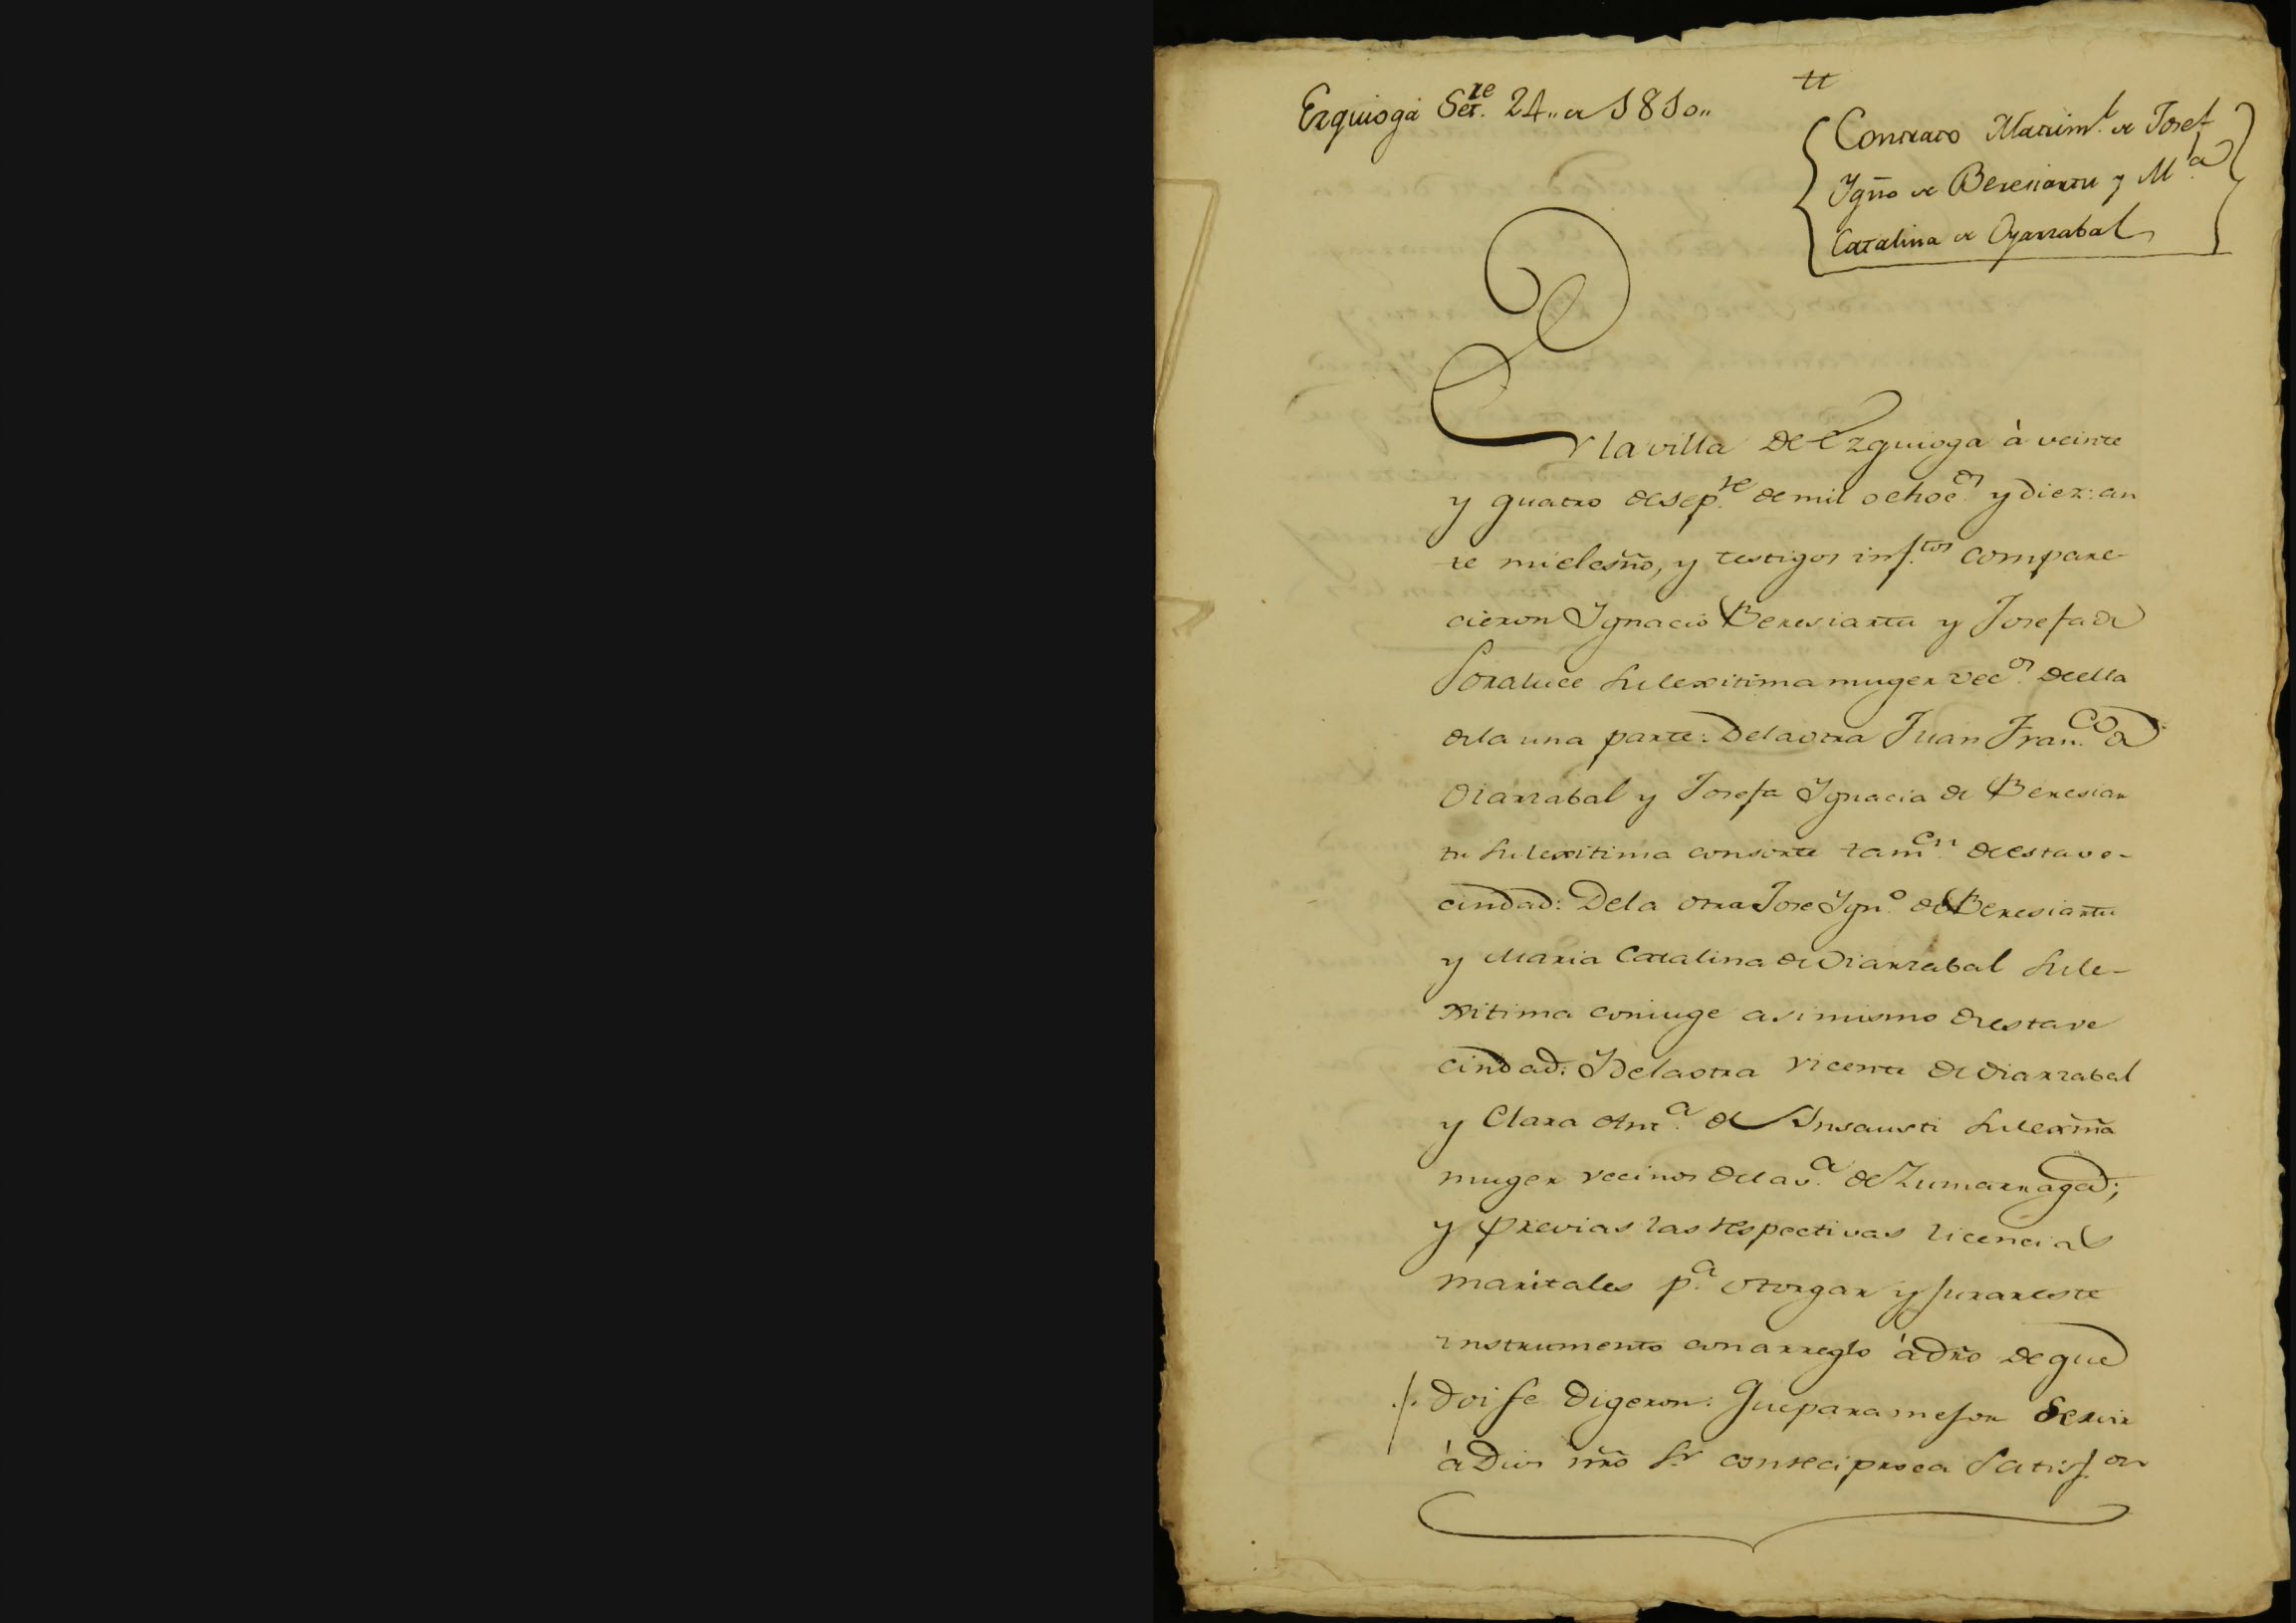 Ezquioga Set.re 24.. de 1810..
tt
Contrato Matrim.l de Josef
Ygño de Beresiartu y M.a
Catalina de Oyarzabal
En la villa de Ezquioga à veinte
y quatro de sep.re de mil ochoc.s y diez: an
te mi el esño, y testigos inf.tos compare-
cieron Ygnacio Beresiartu y Josefa de
Soraluce su lexitima muger vec.os de ella
de la una parte: De la otra Juan Fran.co de
Oiarzabal y Josefa Ygnacia de Beresiar
tu su lexitima consorte tam.en de esta ve-
cindad: De la otra Jose Ygn.o de Beresiartu
y Maria Catalina de Oiarzabal su le-
xitima coniuge asimismo de esta ve
cindad: Y de la otra Vicente de Oiarzabal
y Clara Ant.a de Ynsausti su lexma
muger vecinos de la v.a de Zumarraga;
y previas las respectivas licencias
maritales p.a otorgar y jurar este
instrumento con arreglo à dro de que
doi fe digeron: Que para mejor servir
à Dios nro Sr con reciproca satisf.on